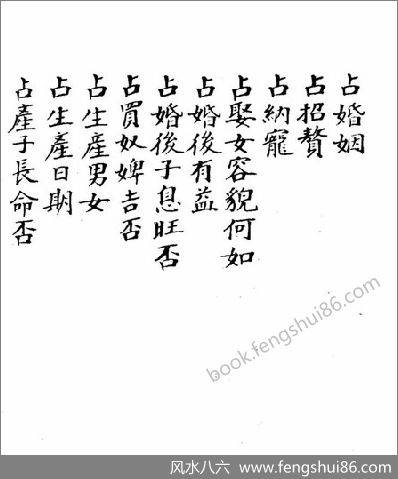 占婚姻
占招贅
占納寵
占娶女容貌何如
占婚後有益
占婚後子息旺否
占買奴婢吉否
占生產男女
占生產日期
占產子長命否
book.fengshui86.com
风水八六 www.fengshui86.com